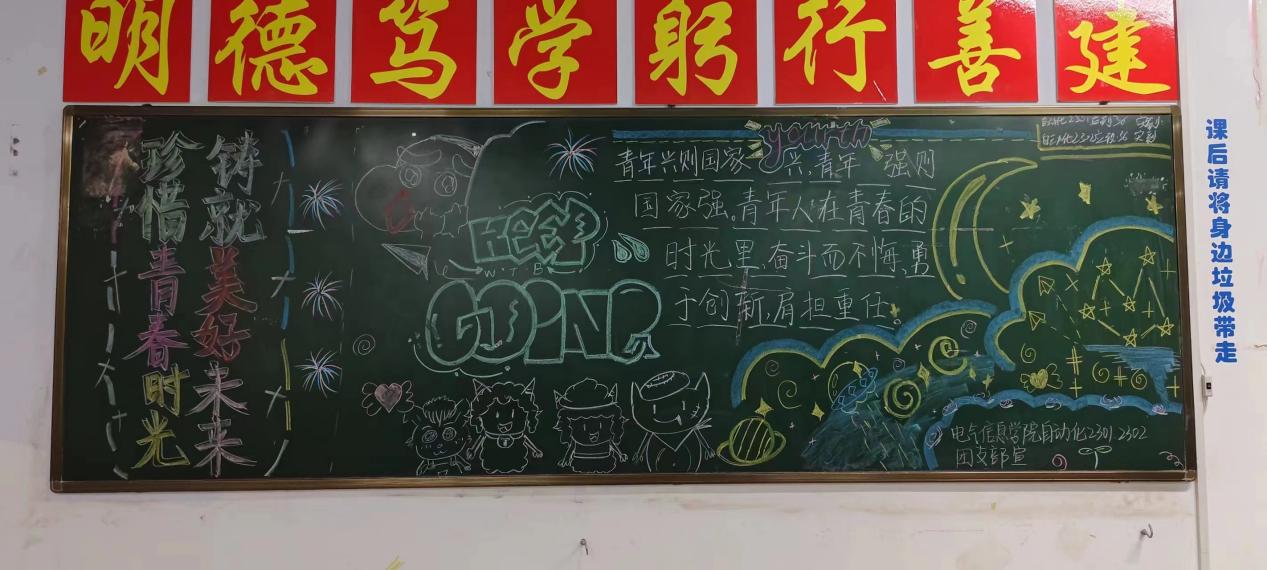 明德笃学躬行善建
珍惜青春时光
铸就美好未来
KEEP
W·T·B
GOING
youth
青年兴则国家兴,青年强则
国家强。青年人在青春的
时光里,奋斗而不悔,勇
于创新,肩担重任。
电气信息学院自动化2301.2302
团支部宣
课后请将身边垃圾带走